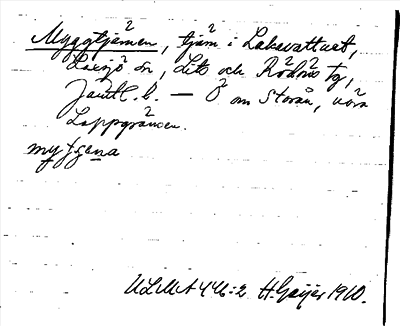 Myggtjärnen, tjärn i Lakavattnet,
Laxsjö sn, Lits och Rödöns tg,
Jämtl. l. — Ö om Storån, nära
Lappgränsen.
myggena
ULMA 446:2 H. Geijer 1910.